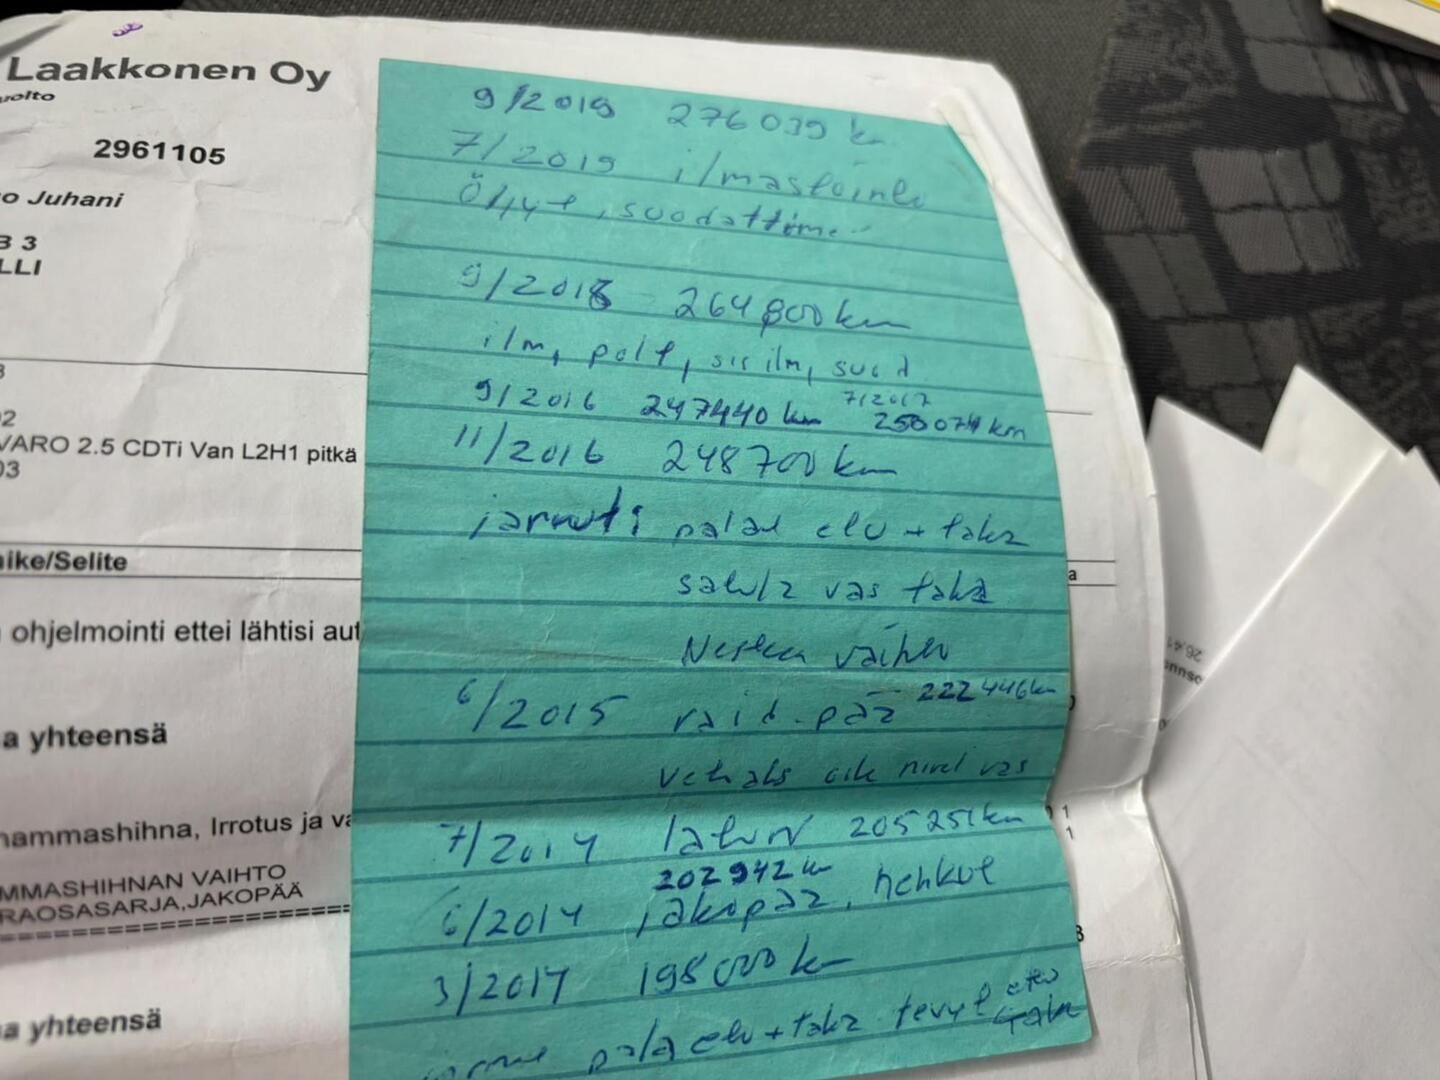 Laakkonen Oy
uolto
2961105
o Juhani
B 3
LLI
02
VARO 2.5 CDTi Van L2H1 pitkä
03
ike/Selite
a
ohjelmointi ettei lähtisi aut
a yhteensä
hammashihna, Irrotus ja va
MMASHIHNAN VAIHTO
RAOSASARJA,JAKOPÄÄ
a yhteensä
9/2019 276039 km
7/2019 ilmastointi
Öljyt, suodattime
9/2018 264800 km
ilm, polt, sis ilm, suod
7/2017
9/2016 247440 km 250074 km
11/2016 248700 km
palat etu + taka
vas taka
6/2015 raid. pää 222446 km
vas
7/2014 laturi 205251 km
202942 km
6/2014 jakopää, hehkut
3/2014 198000 km
pala etu + taka levyt etu
taka
26,41